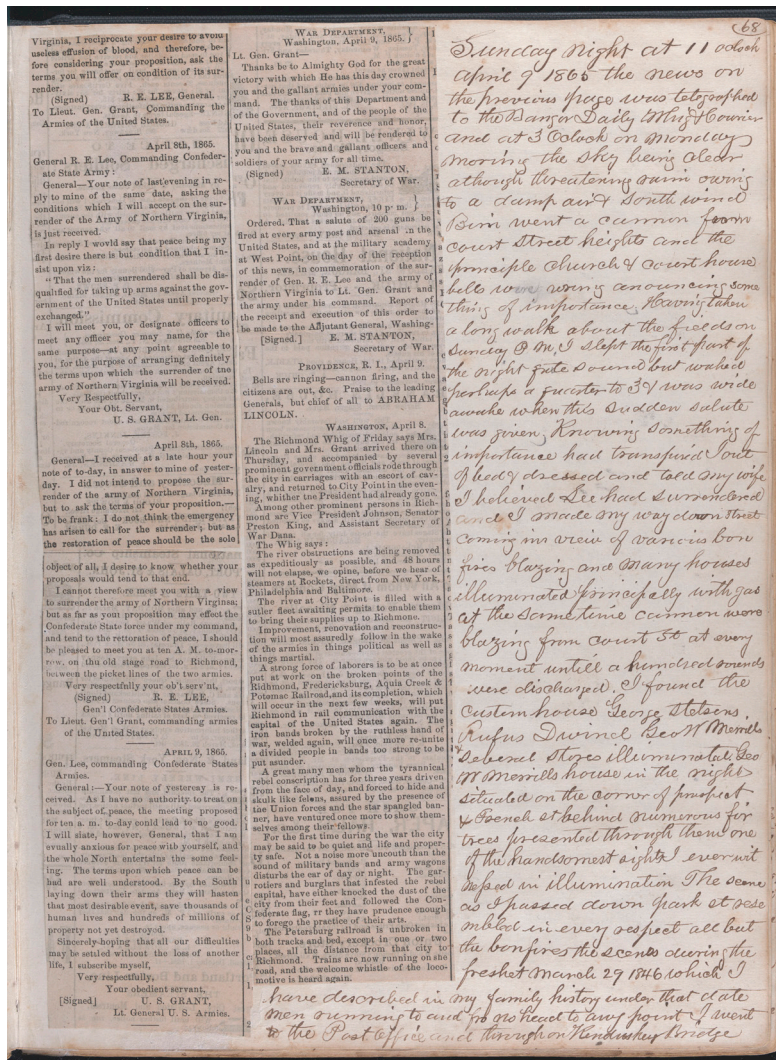 68
Virginia, I reciprocate your desire to avoid
useless effusion of blood, and therefore, be-
fore considering your proposition, ask the
terms you will offer on condition of its sur-
render.
(Signed) R. E. LEE, General.
To Lieut. Gen. Grant, Commanding the
Armies of the United States.
April 8th, 1865.
General R. E. Lee, Commanding Confeder-
ate State Army:
General—Your note of last evening in re-
ply to mine of the same date, asking the
conditions which I will accept on the sur-
render of the Army of Northern Virginia,
is just received.
In reply I would say that peace being my
first desire there is but condition that I in-
sist upon viz:
"That the men surrendered shall be dis-
qualified for taking up arms against the gov-
ernment of the United States until properly
exchanged."
I will meet you, or designate officers to
meet any officer you may name, for the
same purpose—at any point agreeable to
you, for the purpose of arranging definitely
the terms upon which the surrender of tne
army of Northern Virginia will be received.
Very Respectfully,
Your Obt. Servant,
U. S. GRANT, Lt. Gen.
April 8th, 1865.
General—I received at a late hour your
note of to-day, in answer to mine of yester-
day. I did not intend to propose the sur-
render of the army of Northern Virginia,
but to ask the terms of your proposition.—
To be frank: I do not think the emergency
has arisen to call for the surrender; but as
the restoration of peace should be the sole
object of all, I desire to know whether your
proposals would tend to that end.
I cannot therefore meet you with a view
to surrender the army of Northern Virginsa;
but as far as your proposition may effect the
Confederate State force under my command,
and tend to the rettoration of peace, I should
be pleased to meet you at ten A. M. to-mor-
row, on thu old stage road to Richmond,
between the picket lines of the two armies.
Very respectfully your ob't serv'nt,
(Signed) R. E. LEE,
Gen'l Confederate States Armies.
To Lieut. Gen'l Grant, commanding armies
of the United States.
APRIL 9, 1865.
Gen. Lee, commanding Confederate States
Armies.
General:—Your note of yestercay is re-
ceived. As I have no authority to treat on
the subject of peace, the meeting proposed
for ten a. m. to-day could lead to no good.
I will slate, however, General, that I am
evually anxious for peace with yourself, and
the whole North entertains the some feel-
ing. The terms upon which peace can be
had are well understood. By the South
laying down their arms they will hasten
that most desirable event, save thousands of
human lives and hundreds of millions of
property not yet destroyed.
Sincerely-hoping that all our difficulties
may be settled without the loss of another
life, I subscribe myself,
Very respectfully,
Your obedient servant,
[Signed] U. S. GRANT,
Lt. General U. S. Armies.
WAR DEPARTMENT,
Washington, April 9, 1865. }
Lt. Gen. Grant—
Thanks be to Almighty God for the great
victory with which He has this day crowned
you and the gallant armies under your com-
mand. The thanks of this Department and
of the Government, and of the people of the
United States, their reverence and honor,
have been deserved and will be rendered to
you and the brave and gallant officers and
soldiers of your army for all time.
(Signed) E. M. STANTON,
Secretary of War.
WAR DEPARTMENT,
Washington, 10 p. m. }
Ordered. That a salute of 200 guns be
fired at every army post and arsenal in the
United States, and at the military academy
at West Point, on the day of the reception
of this news, in commemoration of the sur-
render of Gen. R. E. Lee and the army of
Northern Virginia to Lt. Gen. Grant and
the army under his command. Report of
the receipt and execution of this order to
be made to the Adjutant General, Washing-
[Signed.] E. M. STANTON,
Secretary of War.
PROVIDENCE, R. I., April 9.
Bells are ringing—cannon firing, and the
citizens are out, &c. Praise to the leading
Generals, but chief of all to ABRAHAM
LINCOLN.
WASHINGTON, April 8.
The Richmond Whig of Friday says Mrs.
Lincoln and Mrs. Grant arrived there on
Thursday, and accompanied by several
prominent government officials rode through
the city in carriages with an escort of cav-
alry, and returned to City Point in the even-
ing, whither tne President had already gone.
Among other prominent persons in Rich-
mond are Vice President Johnson, Senator
Preston King, and Assistant Secretary of
War Dana.
The Whig says:
The river obstructions are being removed
as expeditiously as possible, and 48 hours
will not elapse, we opine, before we hear of
steamers at Rockets, direct from New York,
Philadelphia and Baltimore.
The river at City Point is filled with a
sutler fleet awaiting permits to enable them
to bring their supplies up to Richmond.
Improvement, renovation and reconstruc-
tion will most assuredly follow in the wake
of the armies in things political as well as
things martial.
A strong force of laborers is to be at once
put at work on the broken points of the
Ridhmond, Fredericksburg, Aquia Creek &
Potomac Railroad, and its completion, which
will occur in the next few weeks, will put
Richmond in rail communication with the
capital of the United States again. The
iron bands broken by the ruthless hand of
war, welded again, will once more re-unite
a divided people in bands too strong to be
put asunder.
A great many men whom the tyrannical
rebel conscription has for three years driven
from the face of day, and forced to hide and
skulk like felons, assured by the presence of
the Union forces and the star spangled ban-
ner, have ventured once more to show them-
selves among their fellows.
For the first time during the war the city
may be said to be quiet and life and proper-
ty safe. Not a noise more uncouth than the
sound of military bands and army wagons
disturbs the ear of day or night. The gar-
rotiers and burglars that infested the rebel
capital, have either knocked the dust of the
city from their feet and followed the Con-
federate flag, rr they have prudence enough
to forego the practice of their arts.
The Petersburg railroad is unbroken in
both tracks and bed, except in one or two
places, all the distance from that city to
Richmond. Trains are now running on she
road, and the welcome whistle of the loco-
motive is heard again.
Sunday night at 11 oclock
april 9 1865 the news on
the previous page was telegraphed
to the Bangor Daily Whig & Courier
and at 3 Oclock on Monday
morning the sky being clear
although threatening rain owing
to a damp air & South wind
Bim went a cannon from
court Street heights and the
principle church & court house
bells were wring anouncing some
thing of importance, Having taken
a long walk about the fields on
Sunday P M, I slept the first part of
the night quite sound but waked
perhaps a quarter to 3 & was wide
awake when this sudden salute
was given, Knowing something of
importance had transpired I out
of bed & dressed and told my wife
I believed Lee had surrendered
and I made my way down street
coming in view of various bon
fires blazing and many houses
illuminated principally with gas
at the same time cannon were
blazing from court St at every
moment untill a hundred rounds
were discharged. I found the
Custom house George Stetsons
Rufus Dwinel Geo W Merrills
& Several Stores illuminated, Geo
W Merrills house in the night
situated on the corner of prospect
& French st behind numerous fir
trees presented through them one
of the handsomest sights I ever wit
nessed in illumination The scene
as I passed down park st rese
mbled in every respect all but
the bonfires the scenes during the
freshet March 29 1846 which I
have described in my family history under that date
men running to and fro no head to any point I went
to the Post Office and through on Kenduskeag Bridge